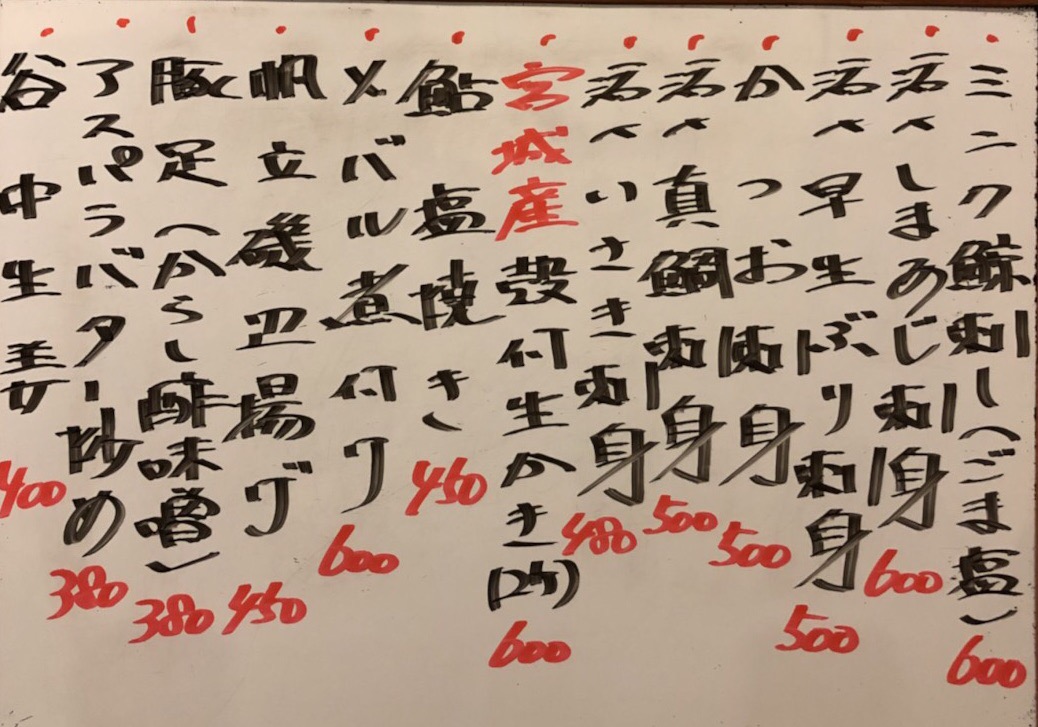 ミンク鯨刺し(ごま塩) 600
活〆しまあじ刺身 600
活〆早生ぶり刺身 500
かつお刺身 500
活〆真鯛刺身 500
活〆いさき刺身 480
宮城産殻付生かき(2ケ) 600
鮎塩焼き 450
メバル煮付け 600
帆立磯辺揚げ 450
豚足(からし酢味噌) 380
アスパラバター炒め 380
谷中生姜 400